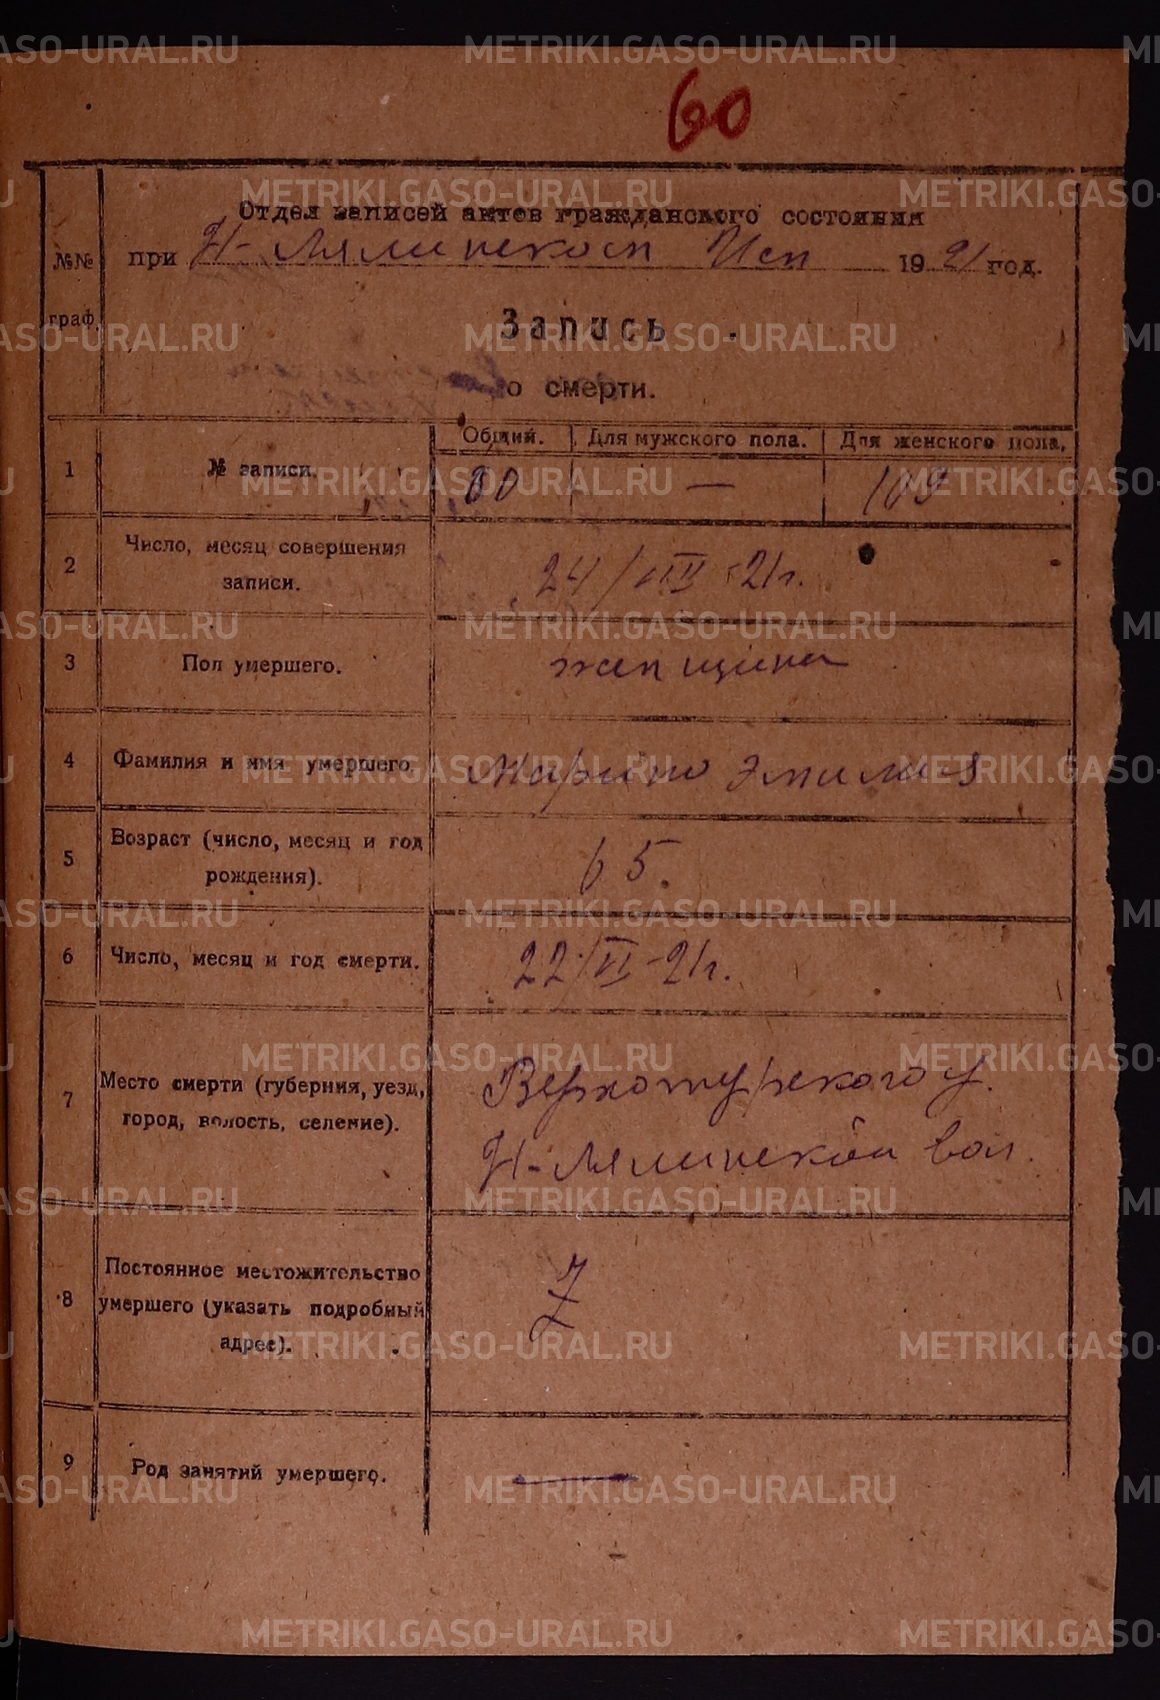 60
Отдел записей актов гражданского состояния
№№ граф.
при Н-Лялинском Исп 1921 год.
Запись
о смерти.
Общий. Для мужского пола. Для женского пола.
1 № записи. 60 — 109
2 Число, месяц совершения
записи. 24/ -21г.
3 Пол умершего. женщина
4 Фамилия и имя умершего Эмилия
5 Возраст (число, месяц и год
рождения). 65.
6 Число, месяц и год смерти. 22/VI-21г.
7 Место смерти (губерния, уезд,
город, волость, селение).
Верхотурского у.
Н-Лялинской вол.
8 Постоянное местожительство
умершего (указать подробный
адрес).
9 Род занятий умершего. —
METRIKI.GASO-URAL.RU